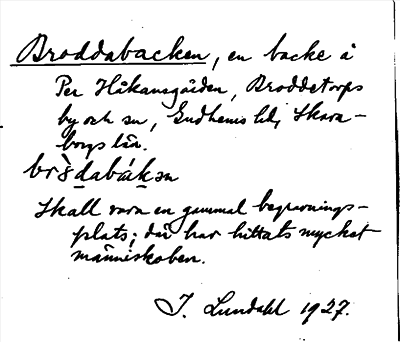 Broddabacken, en backe å
Per Håkansgården, Broddetorps
by och sn, Gudhems hd, Skara-
borgs län.
bròdabákən
Skall vara en gammal begravnings-
plats; där har hittats mycket
människoben.
J. Lundahl 1927.